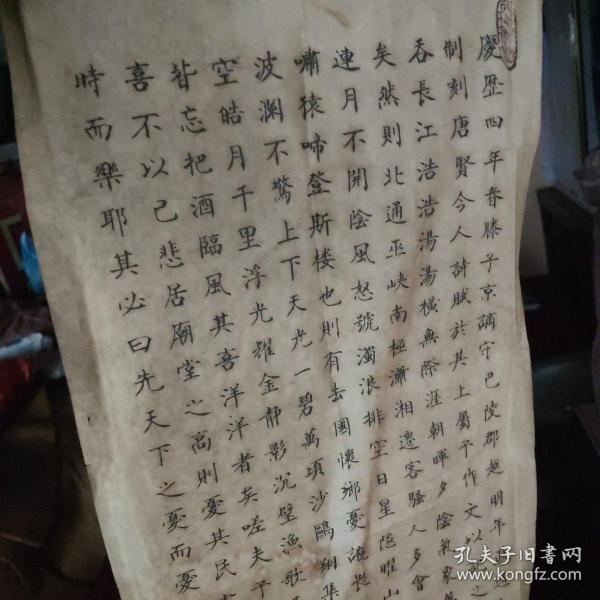 慶歷四年春滕子京謫守巴陵郡越明年
制刻唐賢今人詩賦於其上屬予作文以
吞長江浩浩湯湯橫無際涯朝暉夕陰氣象
矣然則北通巫峽南極瀟湘遷客騷人多會
連月不開陰風怒號濁浪排空日星隱曜山
嘯猿啼登斯楼也則有去國懷鄉憂讒
波瀾不驚上下天光一碧萬頃沙鷗翔集
空皓月千里浮光耀金靜影沉壁漁歌
皆忘把酒臨風其喜洋洋者矣嗟夫予
喜不以己悲居廟堂之高則憂其民
時而樂耶其必曰先天下之憂而憂
孔夫子旧書网
www.kongfz.com